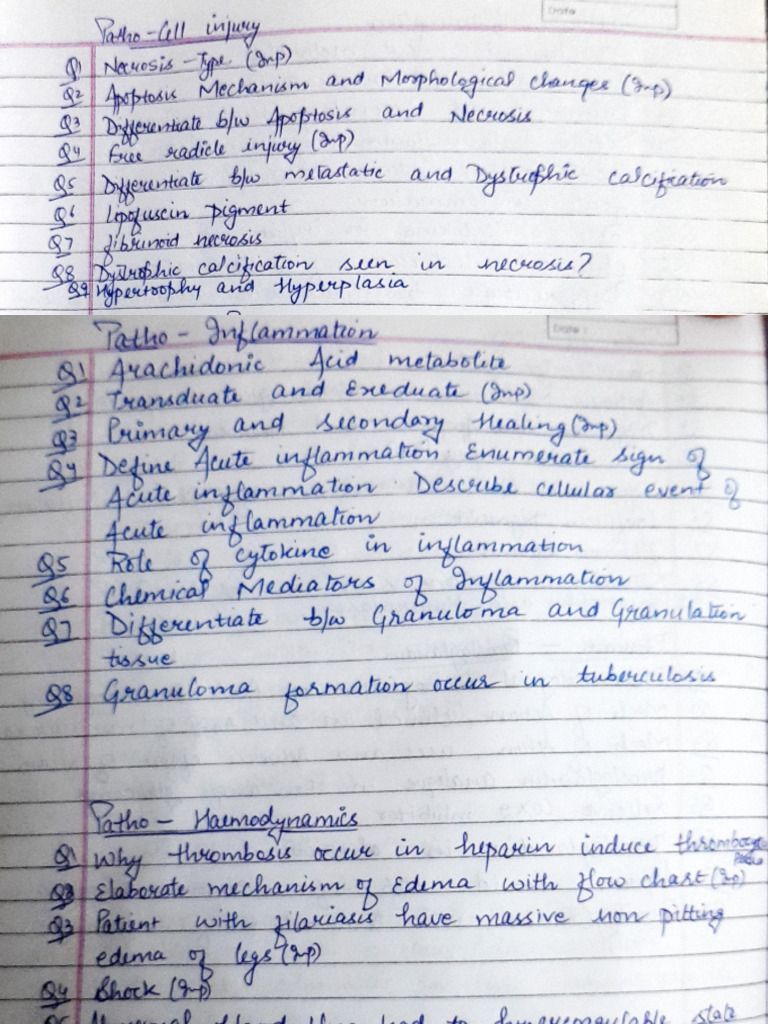 Date
Patho - Cell injury
Q1 Necrosis - Type (Imp)
Q2 Apoptosis Mechanism and Morphological changes (Imp)
Q3 Differentiate b/w Apoptosis and Necrosis
Q4 Free radicle injury (Imp)
Q5 Differentiate b/w metastatic and Dystrophic calcification
Q6 Lipofuscin pigment
Q7 fibrinoid necrosis
Q8 Dystrophic calcification seen in necrosis?
Q9 Hypertrophy and Hyperplasia
Date :
Patho - Inflammation
Q1 Arachidonic Acid metabolite
Q2 Transduate and Exeduate (Imp)
Q3 Primary and secondary Healing (Imp)
Q4 Define Acute inflammation Enumerate sign of
Acute inflammation. Describe cellular event of
Acute inflammation
Q5 Role of cytokine in inflammation
Q6 Chemical Mediators of Inflammation
Q7 Differentiate b/w Granuloma and Granulation
tissue
Q8 Granuloma formation occur in tuberculosis
Patho - Haemodynamics
Q1 Why thrombosis occur in heparin induce
Q2 Elaborate mechanism of Edema with flow chart (Ip)
Q3 Patient with filariasis have massive non pitting
edema of legs (Imp)
Q4 Shock (Imp)
lead to state